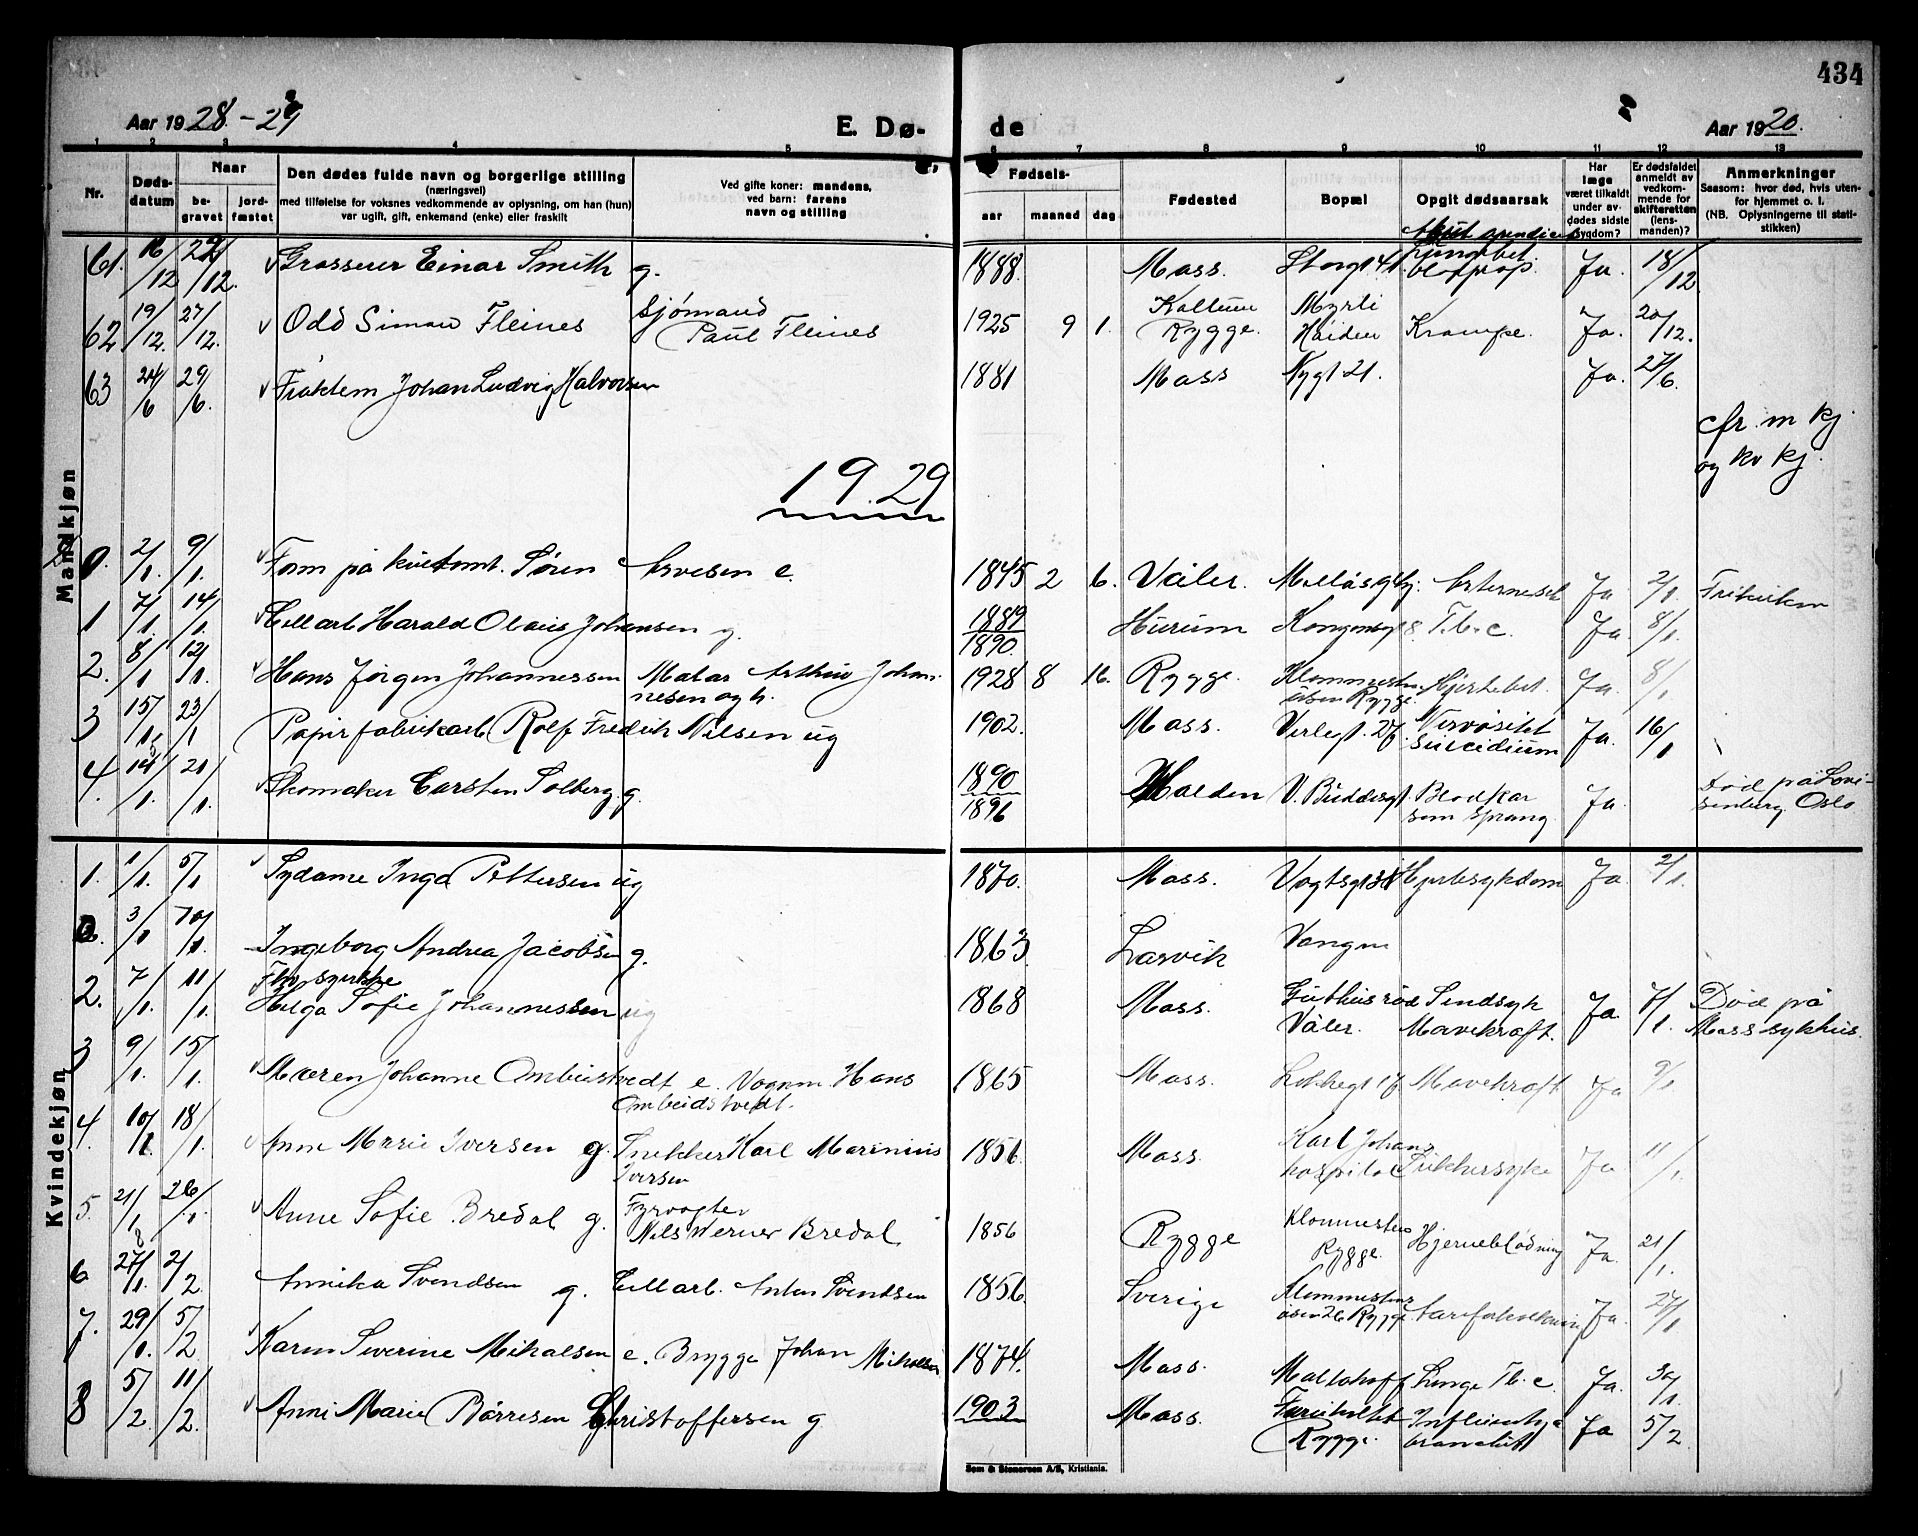 434
Aar 19 28 - 29
E. Dø-
de
Aar 19 20.
1 2 3 4 5 6 7 8 9 10 11 12 13
Nr.
Døds-
datum
Naar
be-
gravet
jord-
fæstet
Den dødes fulde navn og borgerlige stilling
(næringsvei)
med tilføielse for voksnes vedkommende av oplysning, om han (hun)
var ugift, gift, enkemand (enke) eller fraskilt
Ved gifte koner: mandens,
ved barn: farens
navn og stilling
Fødsels-
aar
maaned
dag
Fødested
Bopæl
Opgit dødsaarsak
Har
læge
været tilkaldt
under av-
dødes sidste
sygdom?
Er dødsfaldet
anmeldt av
vedkom-
mende for
skifteretten
(lens-
manden)?
Anmerkninger
Saasom: hvor død, hvis uten-
for hjemmet o. l.
(NB. Oplysningerne til stati-
stikken)
Mandkjøn
61. 16/12 29/12. Grosserer Einar Smith g. 1888. Moss. Storgt 41. Akut apendicit Ja. 18/12
62 19/12. 27/12. Odd Simon Fleines Sjømand Paul Fleines 1925 9 1. Rygge. Krampe. Ja. 20/12.
63 24/6 29/6. Johan Ludvig Halvorsen 1881 Moss Nygt 21. Ja. 27/6.
cfr. m kj
og kv kj.
1929
0. 2/1. 9/1. Søren Arvesen e. 1845 2 6. Våler. Ja 2/1.
1 7/1. 14/1. Cellarb Harald Olaus Johansen g. 1889/1890. Hurum Kongensgt 8 T.b.c. Ja. 8/1.
2. 8/1 12/1. Hans Jørgen Johannessen Arthur Johan-
nesen og h. 1928 8 16. Rygge. Rygge. Ja. 8/1
3 15/1. 23/1 Papirfabrikarb Rolf Fredrik Nilsen ug 1902. Moss. Nervøsitet
suicidium Ja. 16/1
4. 14/1. 21/1. Skomaker Carsten Solberg. g. 1890/1896 Halden V. Buddesgt. Blodkar
som sprang Ja. Død på Lovi-
senberg Oslo
Kvindekjøn
1. 1/1. 5/1 Sydame Inga Pettersen ug 1870. Moss. Vogtsgt 31 Hjertesykdom Ja. 2/1.
3/1 10/1. Ingeborg Andrea Jacobsen g. 1863 Larvik
2. 7/1. 11/1. Helga Sofie Johannessen ug 1868 Moss. Guthusrød
Våler. Sindsyk
Mavekræft. Ja. 7/1. Død på
Moss sykhus.
3 9/1. 15/1. Maren Johanne Ombustvedt e. Vognm Hans
Ombudstvedt. 1865 Moss. Mavekræft Ja 9/1
4. 10/1 18/1. Anne Marie Iversen g. Snekker Karl Marinius
Iversen 1856 Moss. Karl Johans
hospital Sukkersyke Ja 11/1.
5. 21/1 26/1. Anne Sofie Bredal g. Fyrvogter
Nils Werner Bredal 1856 Rygge Rygge. Hjerneblødning Ja. 21/1.
6 27/1. 2/2 Annika Svendsen g. Cellarb. Anton Svendsen 1856. Sverige Rygge. Aareforkalkning Ja. 27/1
7. 29/1. 5/2 Karen Severine Mikalsen e. Brygge Johan Mikalsen 1874. Moss. Lunge Tb.c. Ja. 30/1.
8 5/2. 11/2. Anni Marie Børresen Christoffersen g. 1903 Moss. Rygge. Ja 5/2
Sem & Stenersen A/S, Kristiania.